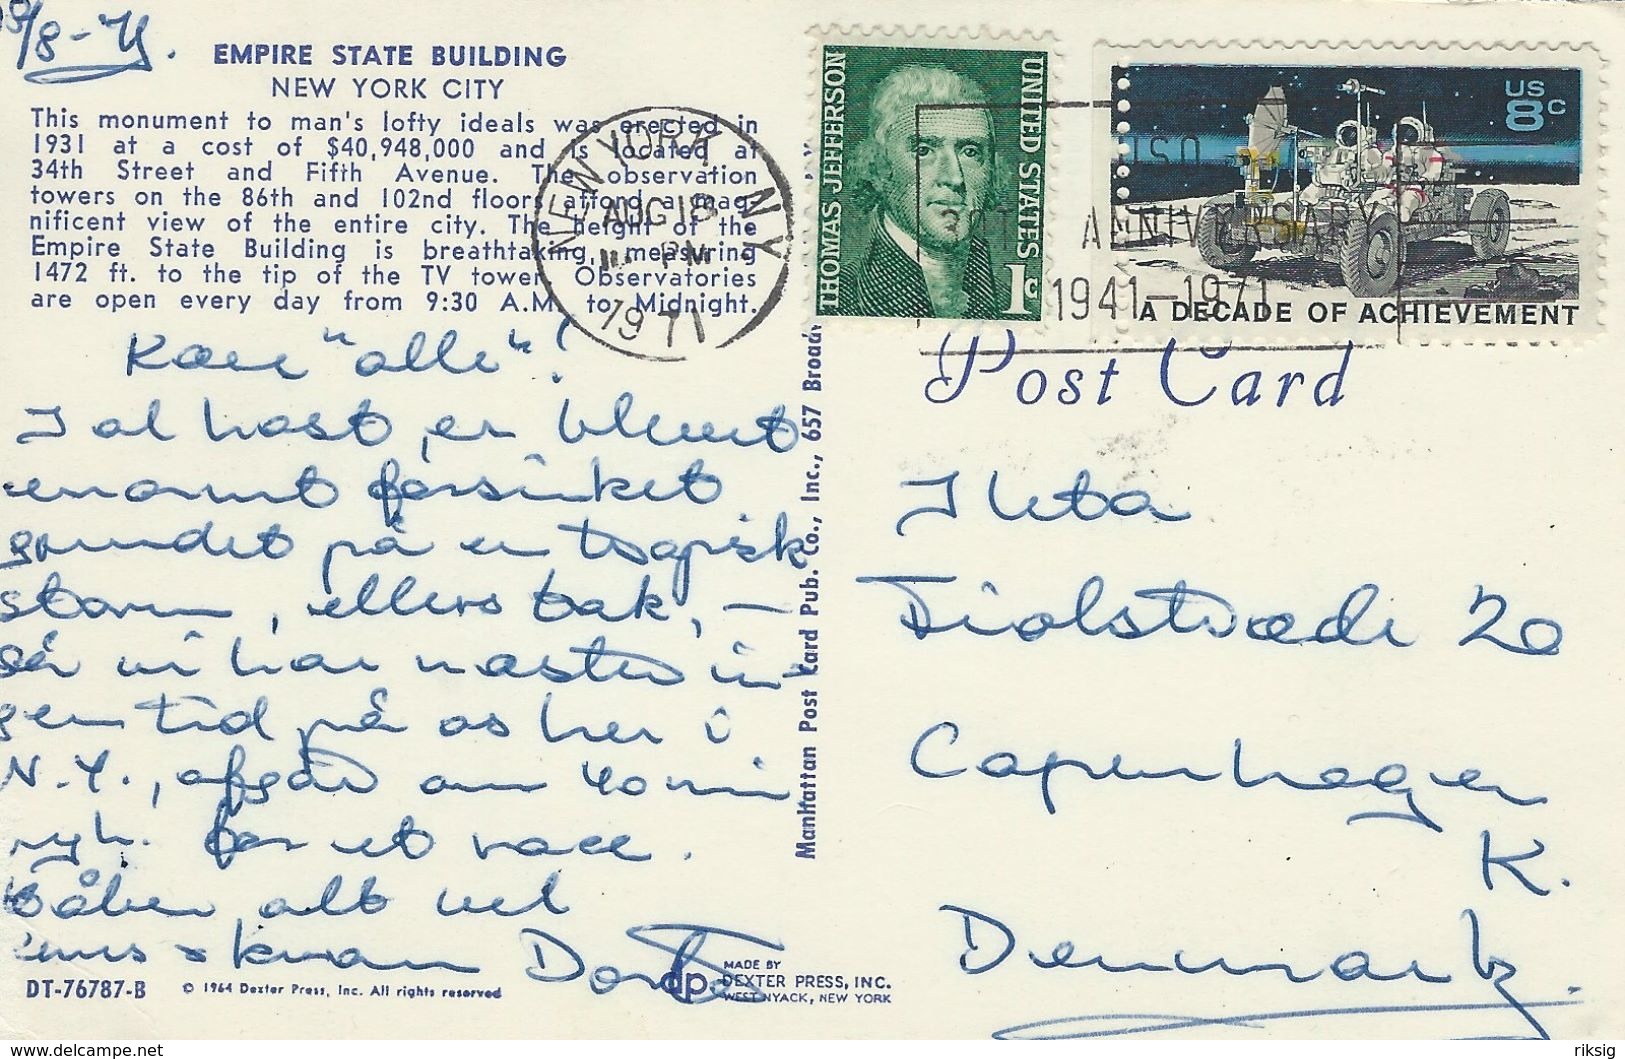 8/8-71.
EMPIRE STATE BUILDING
NEW YORK CITY
This monument to man's lofty ideals was erected in
1931 at a cost of $40,948,000 and is located at
34th Street and Fifth Avenue. The observation
towers on the 86th and 102nd floors afford a mag-
nificent view of the entire city. The height of the
Empire State Building is breathtaking, measuring
1472 ft. to the tip of the TV tower. Observatories
are open every day from 9:30 A.M. to Midnight.
Kære "alle"!
I al hast, er blevet
enormt forsinket
grundet på en tropisk
storm, ellers tak, -
så vi har næsten in-
gen tid på os her i
N.Y., afgår om 40 min
for et ræs.
Håber alt vel
knus
DT-76787-B
© 1964 Dexter Press, Inc. All rights reserved
dp
MADE BY
DEXTER PRESS, INC.
WEST NYACK, NEW YORK
Manhattan Post Card Pub. Co., Inc., 657 Broadw
NEW YORK NY
AUG 18
PM
1971
THOMAS JEFFERSON
UNITED STATES
1c
US
8c
A DECADE OF ACHIEVEMENT
USO
30TH ANNIVERSARY
1941-1971
Post Card
Fiolstræde 20
Copenhagen
K.
Denmark
delcampe.net
riksig